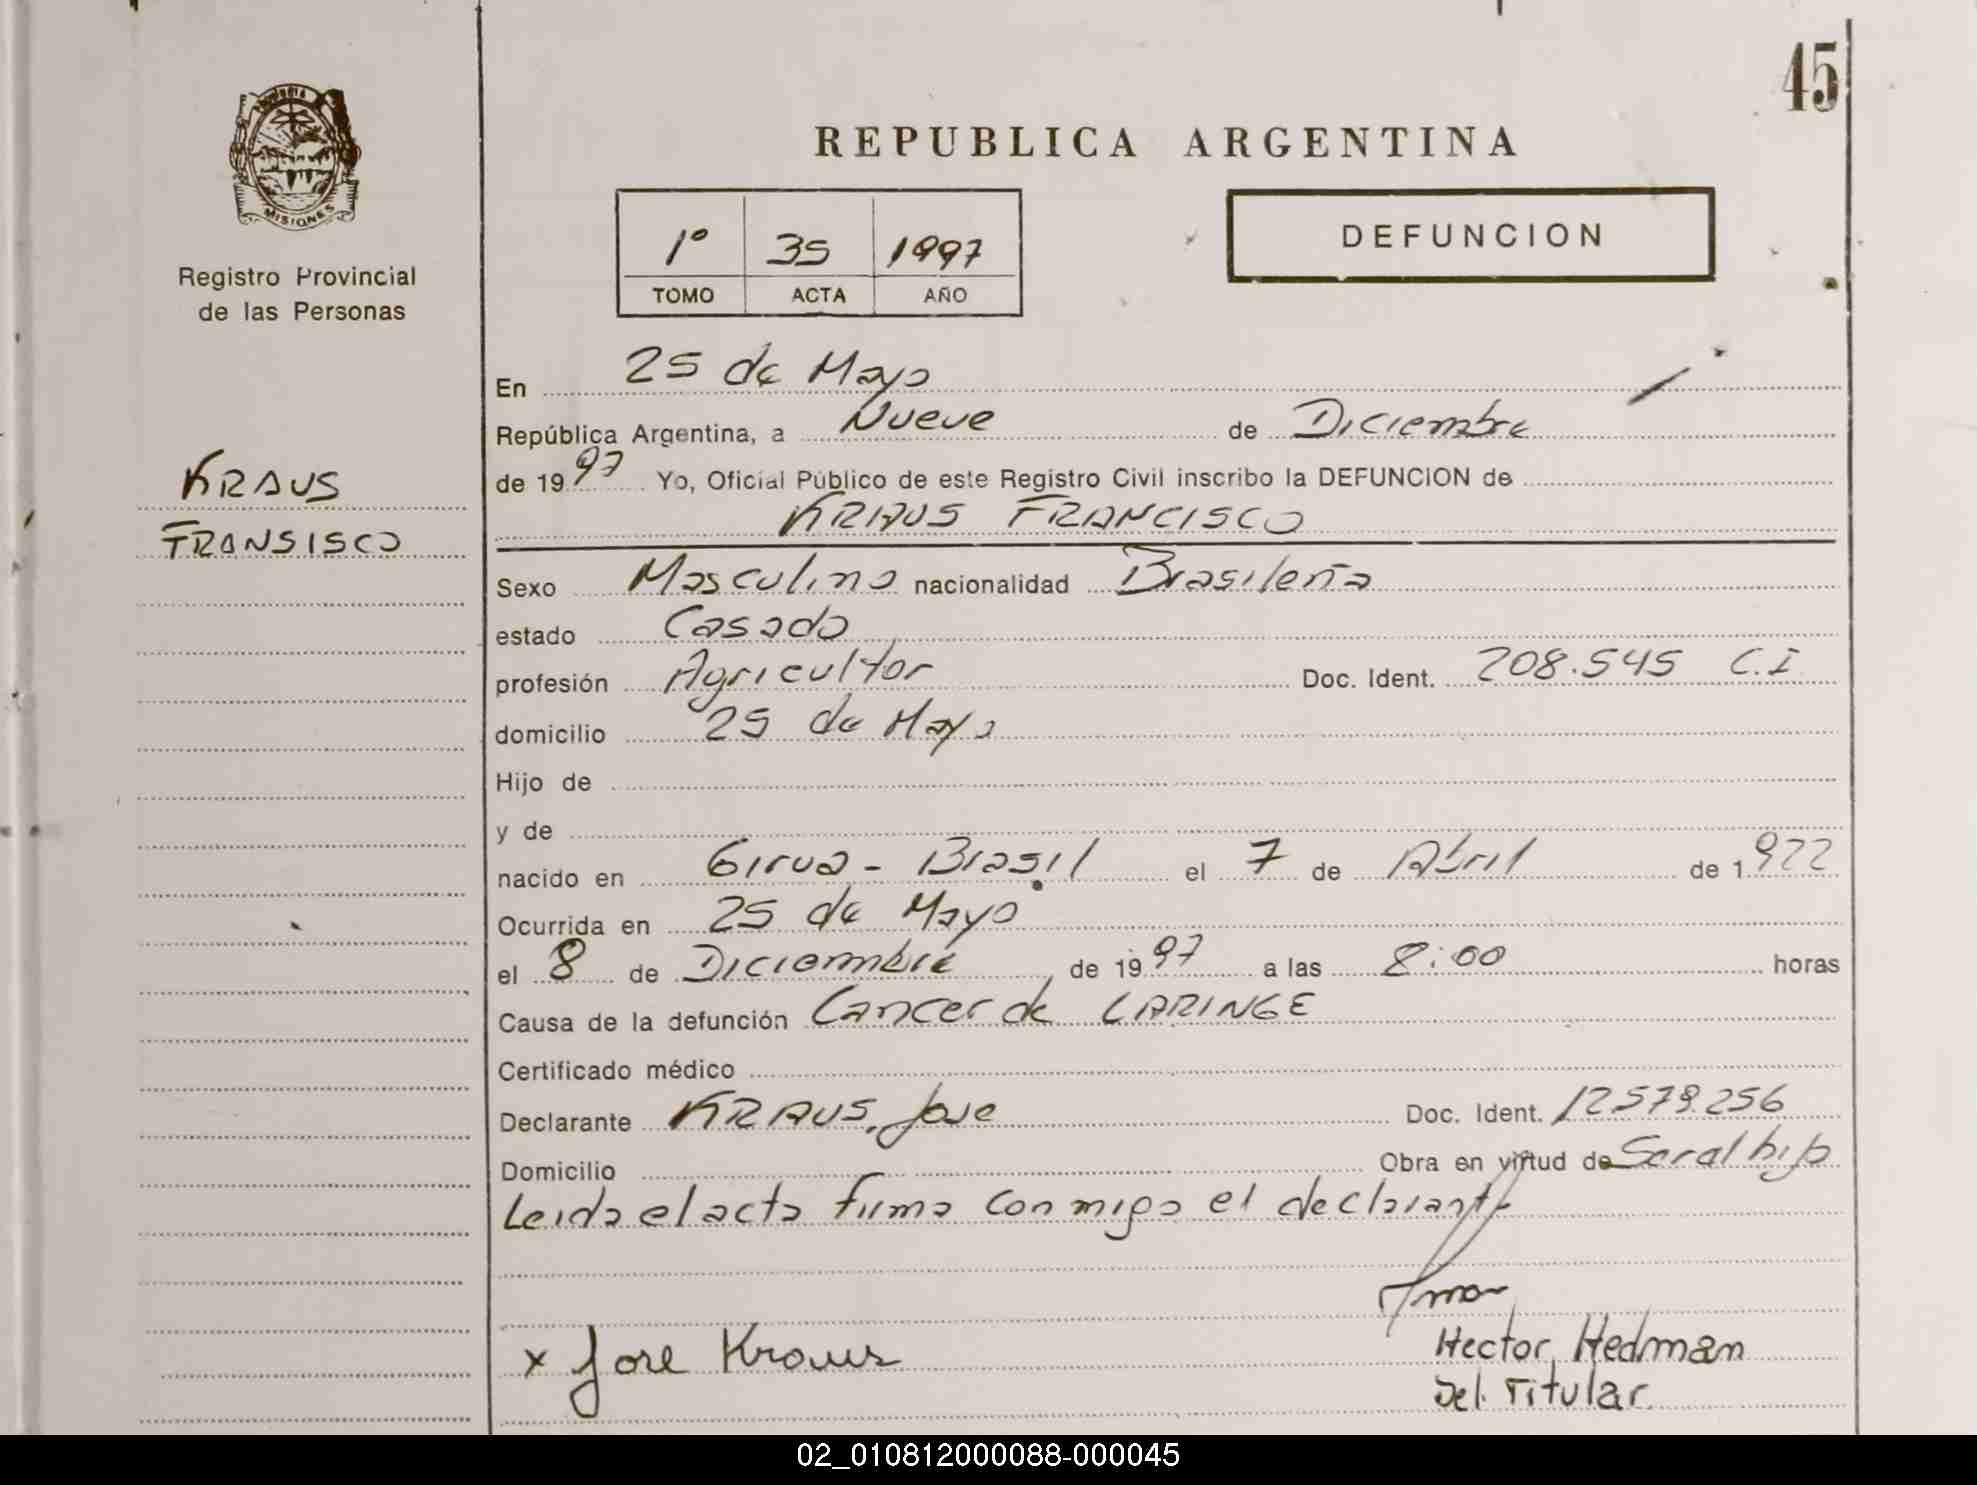 45
REPUBLICA ARGENTINA
MISIONES
Registro Provincial
de las Personas
1º 35 1997
TOMO ACTA AÑO
DEFUNCION
KRAUS
FRANSISCO
En 25 de Mayo
República Argentina, a Nueve de Diciembre
de 1997 Yo, Oficial Público de este Registro Civil inscribo la DEFUNCION de
KRAUS FRANCISCO
Sexo Masculino nacionalidad Brasileña
estado Casado
profesión Agricultor Doc. Ident. 208.545 C.I
domicilio 25 de Mayo
Hijo de
y de
nacido en Girua - Brasil el 7 de Abril de 1922
Ocurrida en 25 de Mayo
el 8 de Diciembre de 1997 a las 8:00 horas
Causa de la defunción Cancer de LARINGE
Certificado médico
Declarante KRAUS, Jose Doc. Ident. 12.579.256
Domicilio Obra en virtud de Ser al hijo
Leida el acta firma conmigo el declarante
x Jose Kraus
Hector Hedman
Del. Titular
02_010812000088-000045